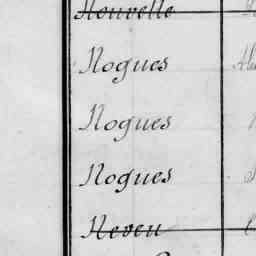 Nouvelle
Nogues
Nogues
Nogues
Neveu